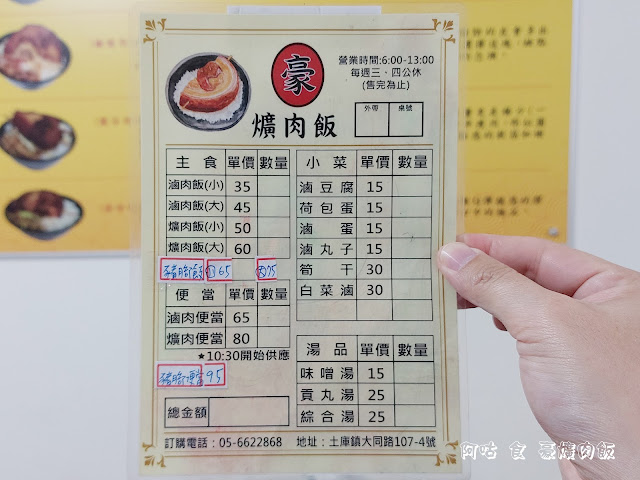 豪
爌肉飯
營業時間:6:00-13:00
每週三．四公休
(售完為止)
外帶 桌號
主食 單價 數量
滷肉飯(小) 35
滷肉飯(大) 45
爌肉飯(小) 50
爌肉飯(大) 60
豬腳飯 小65 大75
便當 單價 數量
滷肉便當 65
爌肉便當 80
★10:30開始供應
豬腳便當 95
總金額
小菜 單價 數量
滷豆腐 15
荷包蛋 15
滷蛋 15
滷丸子 15
筍干 30
白菜滷 30
湯品 單價 數量
味噌湯 15
貢丸湯 25
綜合湯 25
訂購電話：05-6622868 地址：土庫鎮大同路107-4號
阿咕 食 豪爌肉飯